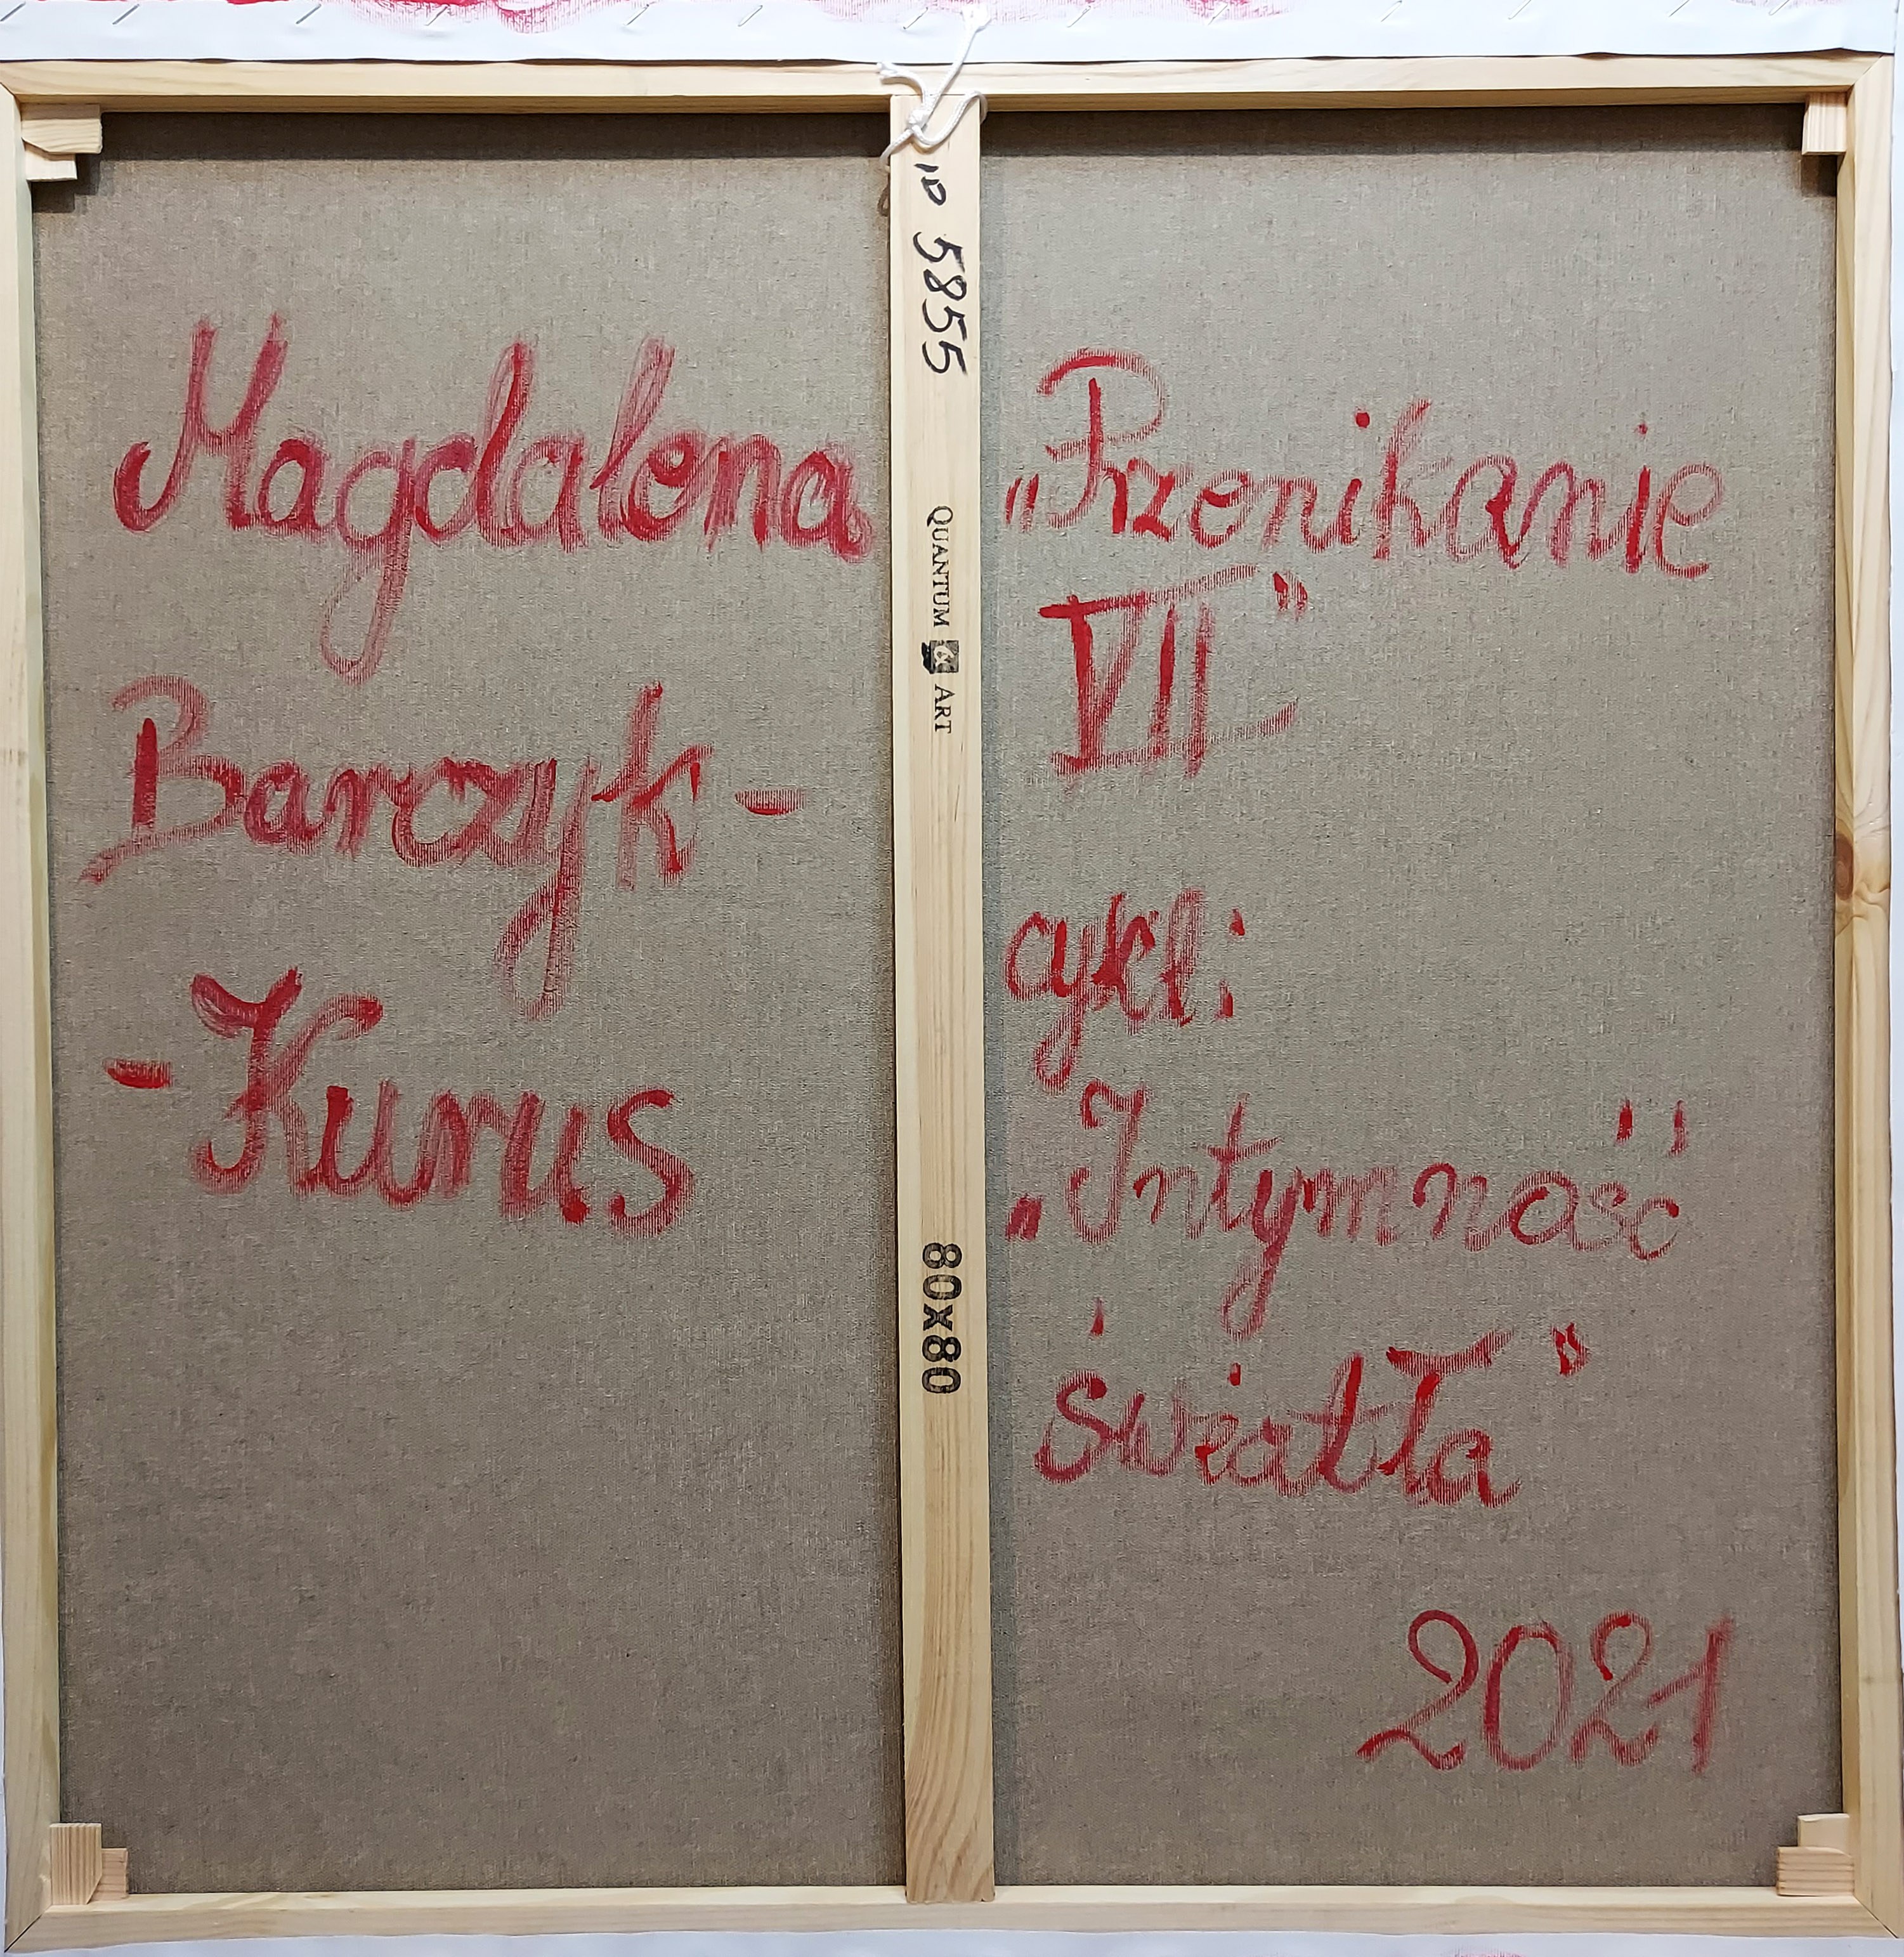 Magdalena
Barczyk-
-Kurus
ID 5855
QUANTUM ART
80x80
„Przenikanie
VII"
cykl:
„Intymność
światła"
2021